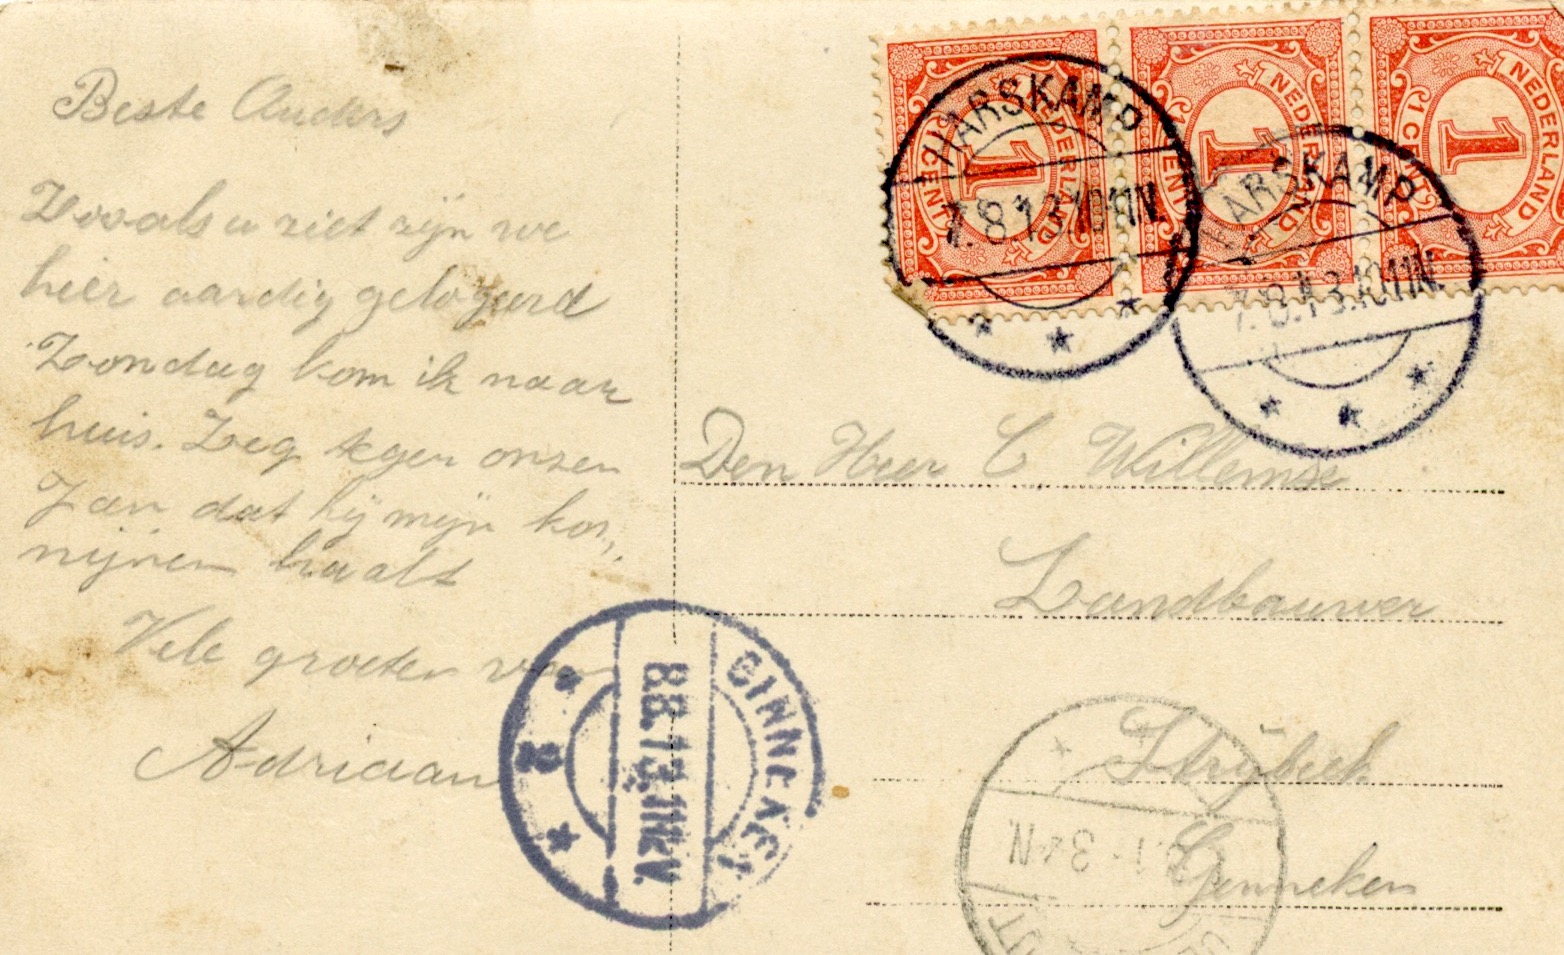 Beste Ouders
Zooals u ziet zijn we
hier aardig gelogeerd
Zondag kom ik naar
huis. Zeg tegen onzen
Jan dat hij mijn kon„
nijnen haalt
Vele groeten van
Adriaan
NEDERLAND
1 CENT
NEDERLAND
1 CENT
NEDERLAND
1 CENT
HARSKAMP
7.8.13.10-11N.
HARSKAMP
7.8.13.10-11N.
Den Heer C Willemse
Landbouwer
Strijbeek
Ginneken
GINNEKEN
8.8.13.11-12V.
3-4N.